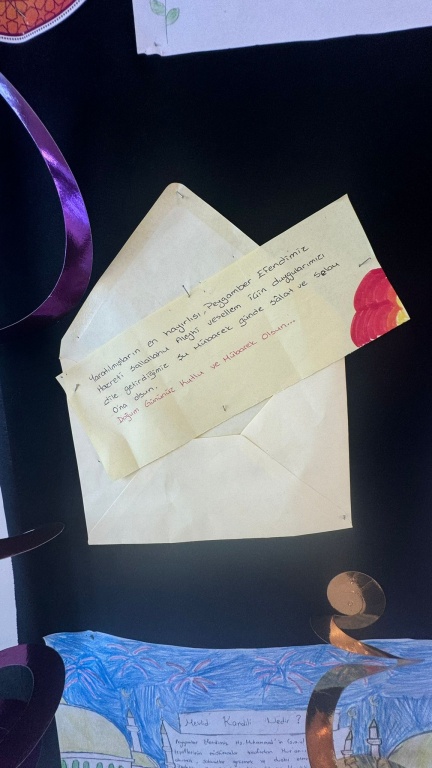 Yaratılmışların en hayırlısı, Peygamber Efendimiz
Hazreti Sallallahu Aleyhi vesellem için duygularımızı
dile getirdiğimiz şu mübarek günde salat ve selam
O'na olsun.
Doğum Gününüz Kutlu ve Mübarek Olsun...
Mevlid Kandili Nedir?
Peygamber Efendimiz Hz. Muhammed'in